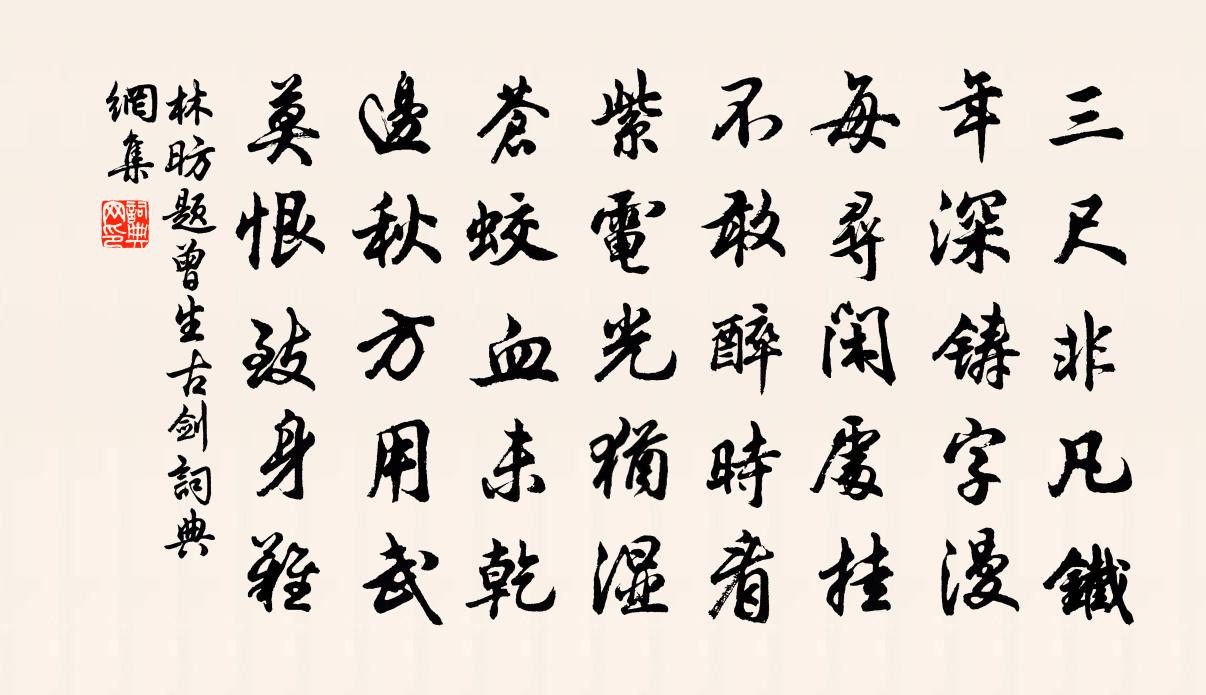 三尺非凡鐵
年深鑄字漫
每尋閑處挂
不敢醉時看
紫電光猶濕
蒼蛟血未乾
邊秋方用武
莫恨致身難
林昉題曾生古劍詞典
網集
詞典
网印